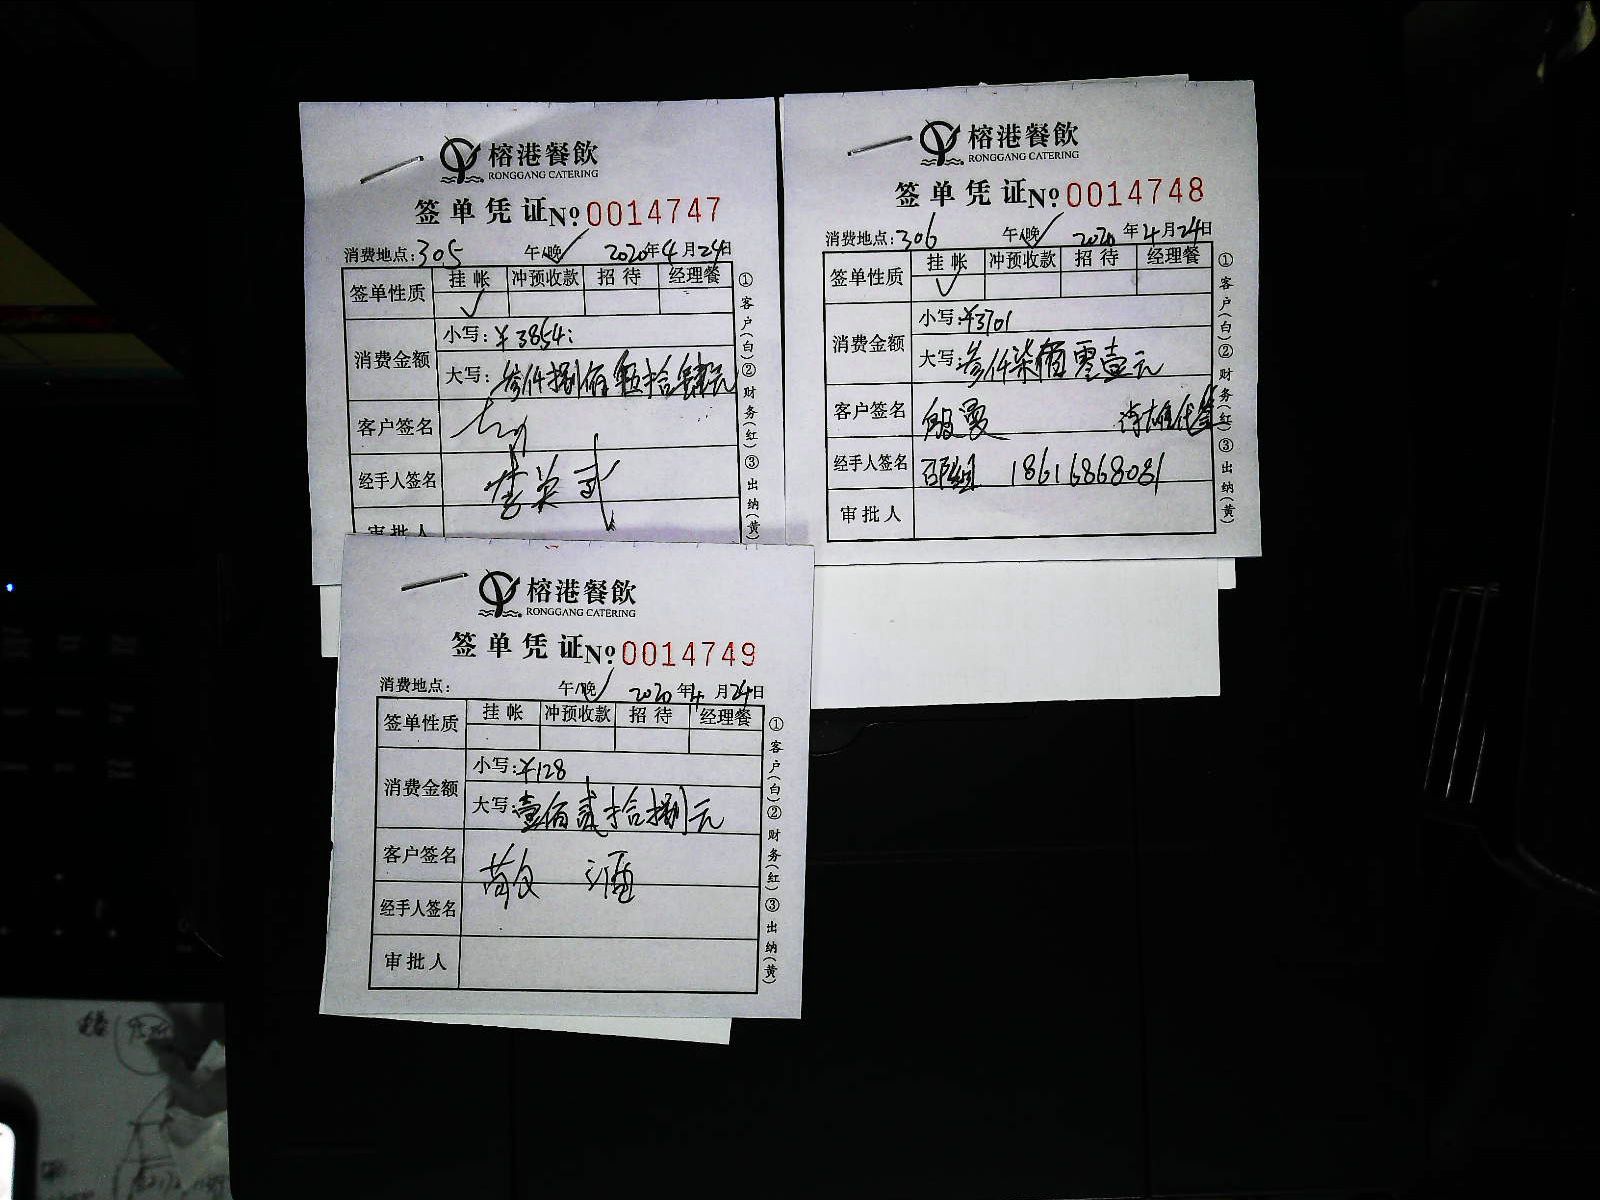 榕港餐飲
RONGGANG CATERING
签单凭证№0014747
消费地点:305 午/晚✓ 2020年4月24日
签单性质 挂帐 冲预收款 招待 经理餐
✓
消费金额 小写:¥3854:
大写:叁仟捌佰伍拾肆元
客户签名
经手人签名
审批人
①客户(白)②财务(红)③出纳(黄)
榕港餐飲
RONGGANG CATERING
签单凭证№0014748
消费地点:306 午/晚✓ 2020年4月24日
签单性质 挂帐 冲预收款 招待 经理餐
✓
消费金额 小写:¥3701
大写:叁仟柒佰零壹元
客户签名 殷曼
经手人签名 18616868081
审批人
①客户(白)②财务(红)③出纳(黄)
榕港餐飲
RONGGANG CATERING
签单凭证№0014749
消费地点: 午/晚✓ 2020年4月24日
签单性质 挂帐 冲预收款 招待 经理餐
消费金额 小写:¥128
大写:壹佰贰拾捌元
客户签名 敬酒
经手人签名
审批人
①客户(白)②财务(红)③出纳(黄)